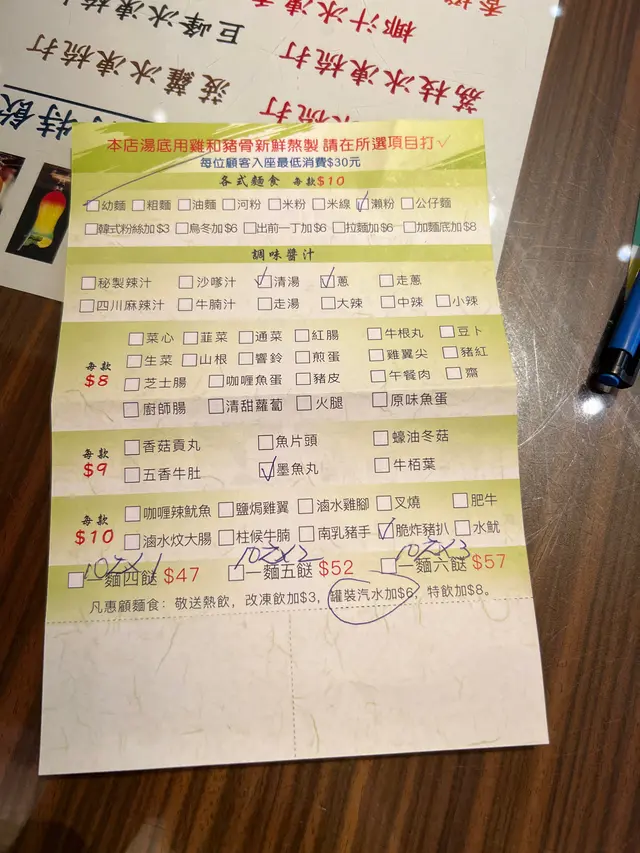 椰汁冰凍
巨峰冰凍梳打
荔枝冰凍梳打
菠蘿冰凍梳打
冰梳打
特飲
本店湯底用雞和豬骨新鮮熬製 請在所選項目打✓
每位顧客入座最低消費$30元
各式麵食 每款$10
☐幼麵 ☐粗麵 ☐油麵 ☐河粉 ☐米粉 ☐米線 ☑瀨粉 ☐公仔麵
☐韓式粉絲加$3 ☐烏冬加$6 ☐出前一丁加$6 ☐拉麵加$6 ☐加麵底加$8
調味醬汁
☐秘製辣汁 ☐沙嗲汁 ☑清湯 ☑蔥 ☐走蔥
☐四川麻辣汁 ☐牛腩汁 ☐走湯 ☐大辣 ☐中辣 ☐小辣
每款 $8
☐菜心 ☐韮菜 ☐通菜 ☐紅腸 ☐牛根丸 ☐豆卜
☐生菜 ☐山根 ☐響鈴 ☐煎蛋 ☐雞翼尖 ☐豬紅
☐芝士腸 ☐咖喱魚蛋 ☐豬皮 ☐午餐肉 ☐齋
☐廚師腸 ☐清甜蘿蔔 ☐火腿 ☐原味魚蛋
每款 $9
☐香菇貢丸 ☐魚片頭 ☐蠔油冬菇
☐五香牛肚 ☑墨魚丸 ☐牛栢葉
每款 $10
☐咖喱辣魷魚 ☐鹽焗雞翼 ☐滷水雞腳 ☐叉燒 ☐肥牛
☐滷水炆大腸 ☐柱候牛腩 ☐南乳豬手 ☑脆炸豬扒 ☐水魷
10元X1 10元X2 10元X3
☐一麵四餸 $47 ☐一麵五餸 $52 ☐一麵六餸 $57
凡惠顧麵食：敬送熱飲，改凍飲加$3，罐裝汽水加$6，特飲加$8。